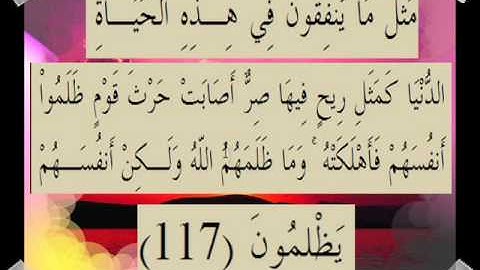 مَثَلُ مَا يُنْفِقُونَ فِي هِـــذِهِ الْحَيَـــاةِ
الدُّنْيَا كَمَثَلِ رِيحٍ فِيهَا صِرٌّ أَصَابَتْ حَرْثَ قَوْمٍ ظَلَمُواْ
أَنفُسَهُمْ فَأَهْلَكَتْهُ ۚ وَمَا ظَلَمَهُمُ اللّهُ وَلَـــكِنْ أَنفُســـَهُمْ
يَظْلِمُونَ (117)